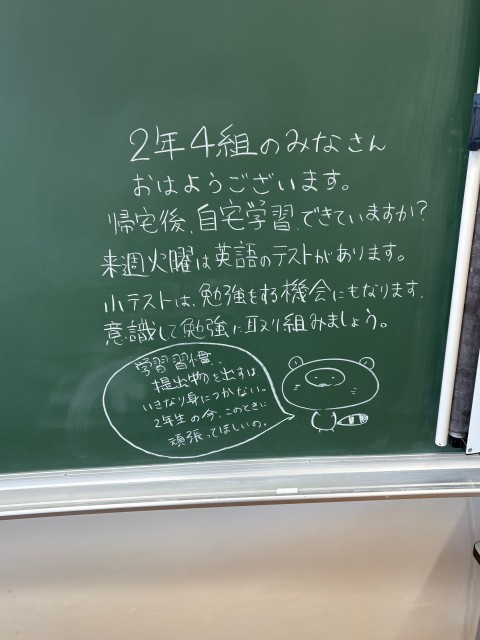 2年4組のみなさん
おはようございます。
帰宅後、自宅学習、できていますか?
来週火曜は英語のテストがあります。
小テストは、勉強をする機会にもなります。
意識して勉強に取り組みましょう。
学習習慣、
提出物を出すは
いきなり身につかない。
2年生の今、このときに
頑張ってほしいの。